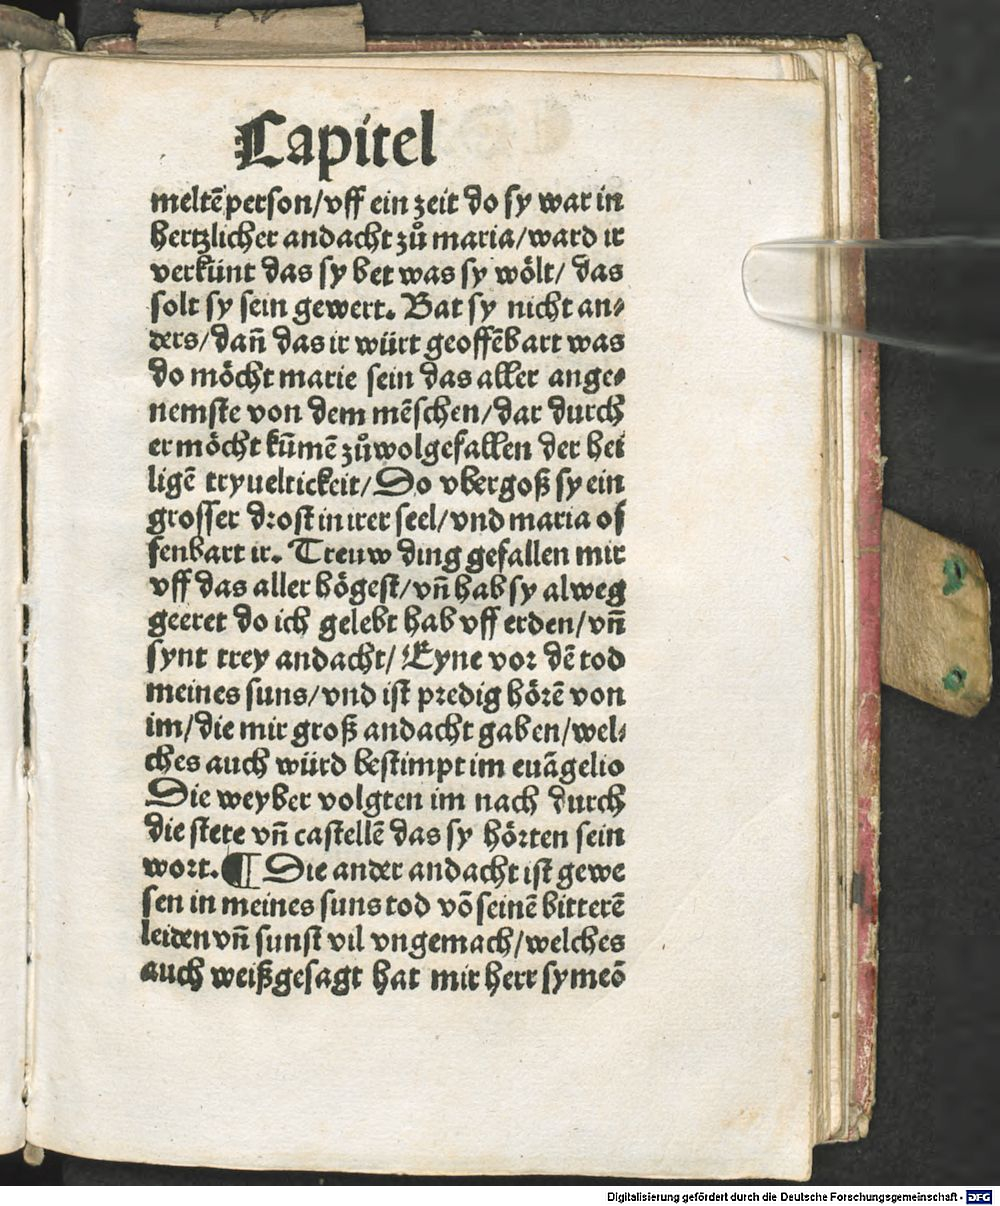 Capitel
meltē person/vff ein zeit do sy war in
hertzlicher andacht zů maria/ward ir
verkünt das sy bet was sy wölt/ das
solt sy sein gewert. Bat sy nicht an⸗
ders/dañ das ir würt geoffēbart was
do möcht marie sein das aller ange⸗
nemste von dem mēschen/dar durch
er möcht kūmē zů wolgefallen der hei
ligē tryueltickeit/Do vbergoß sy ein
grosser drost in irer seel/vnd maria of
fenbart ir. Treuw ding gefallen mir
vff das aller högest/vñ hab sy alweg
geeret do ich gelebt hab vff erden/vñ
synt trey andacht/Eyne vor dē tod
meines suns/vnd ist predig hörē von
im/die mir groß andacht gaben/wel⸗
ches auch würd bestimpt im euāgelio
Die weyber volgten im nach durch
die stete vñ castellē das sy hörten sein
wort. ¶ Die ander andacht ist gewe
sen in meines suns tod vō seinē bitterē
leiden vñ sunst vil vngemach/welches
auch weißgesagt hat mir herr symeō
Digitalisierung gefördert durch die Deutsche Forschungsgemeinschaft - DFG